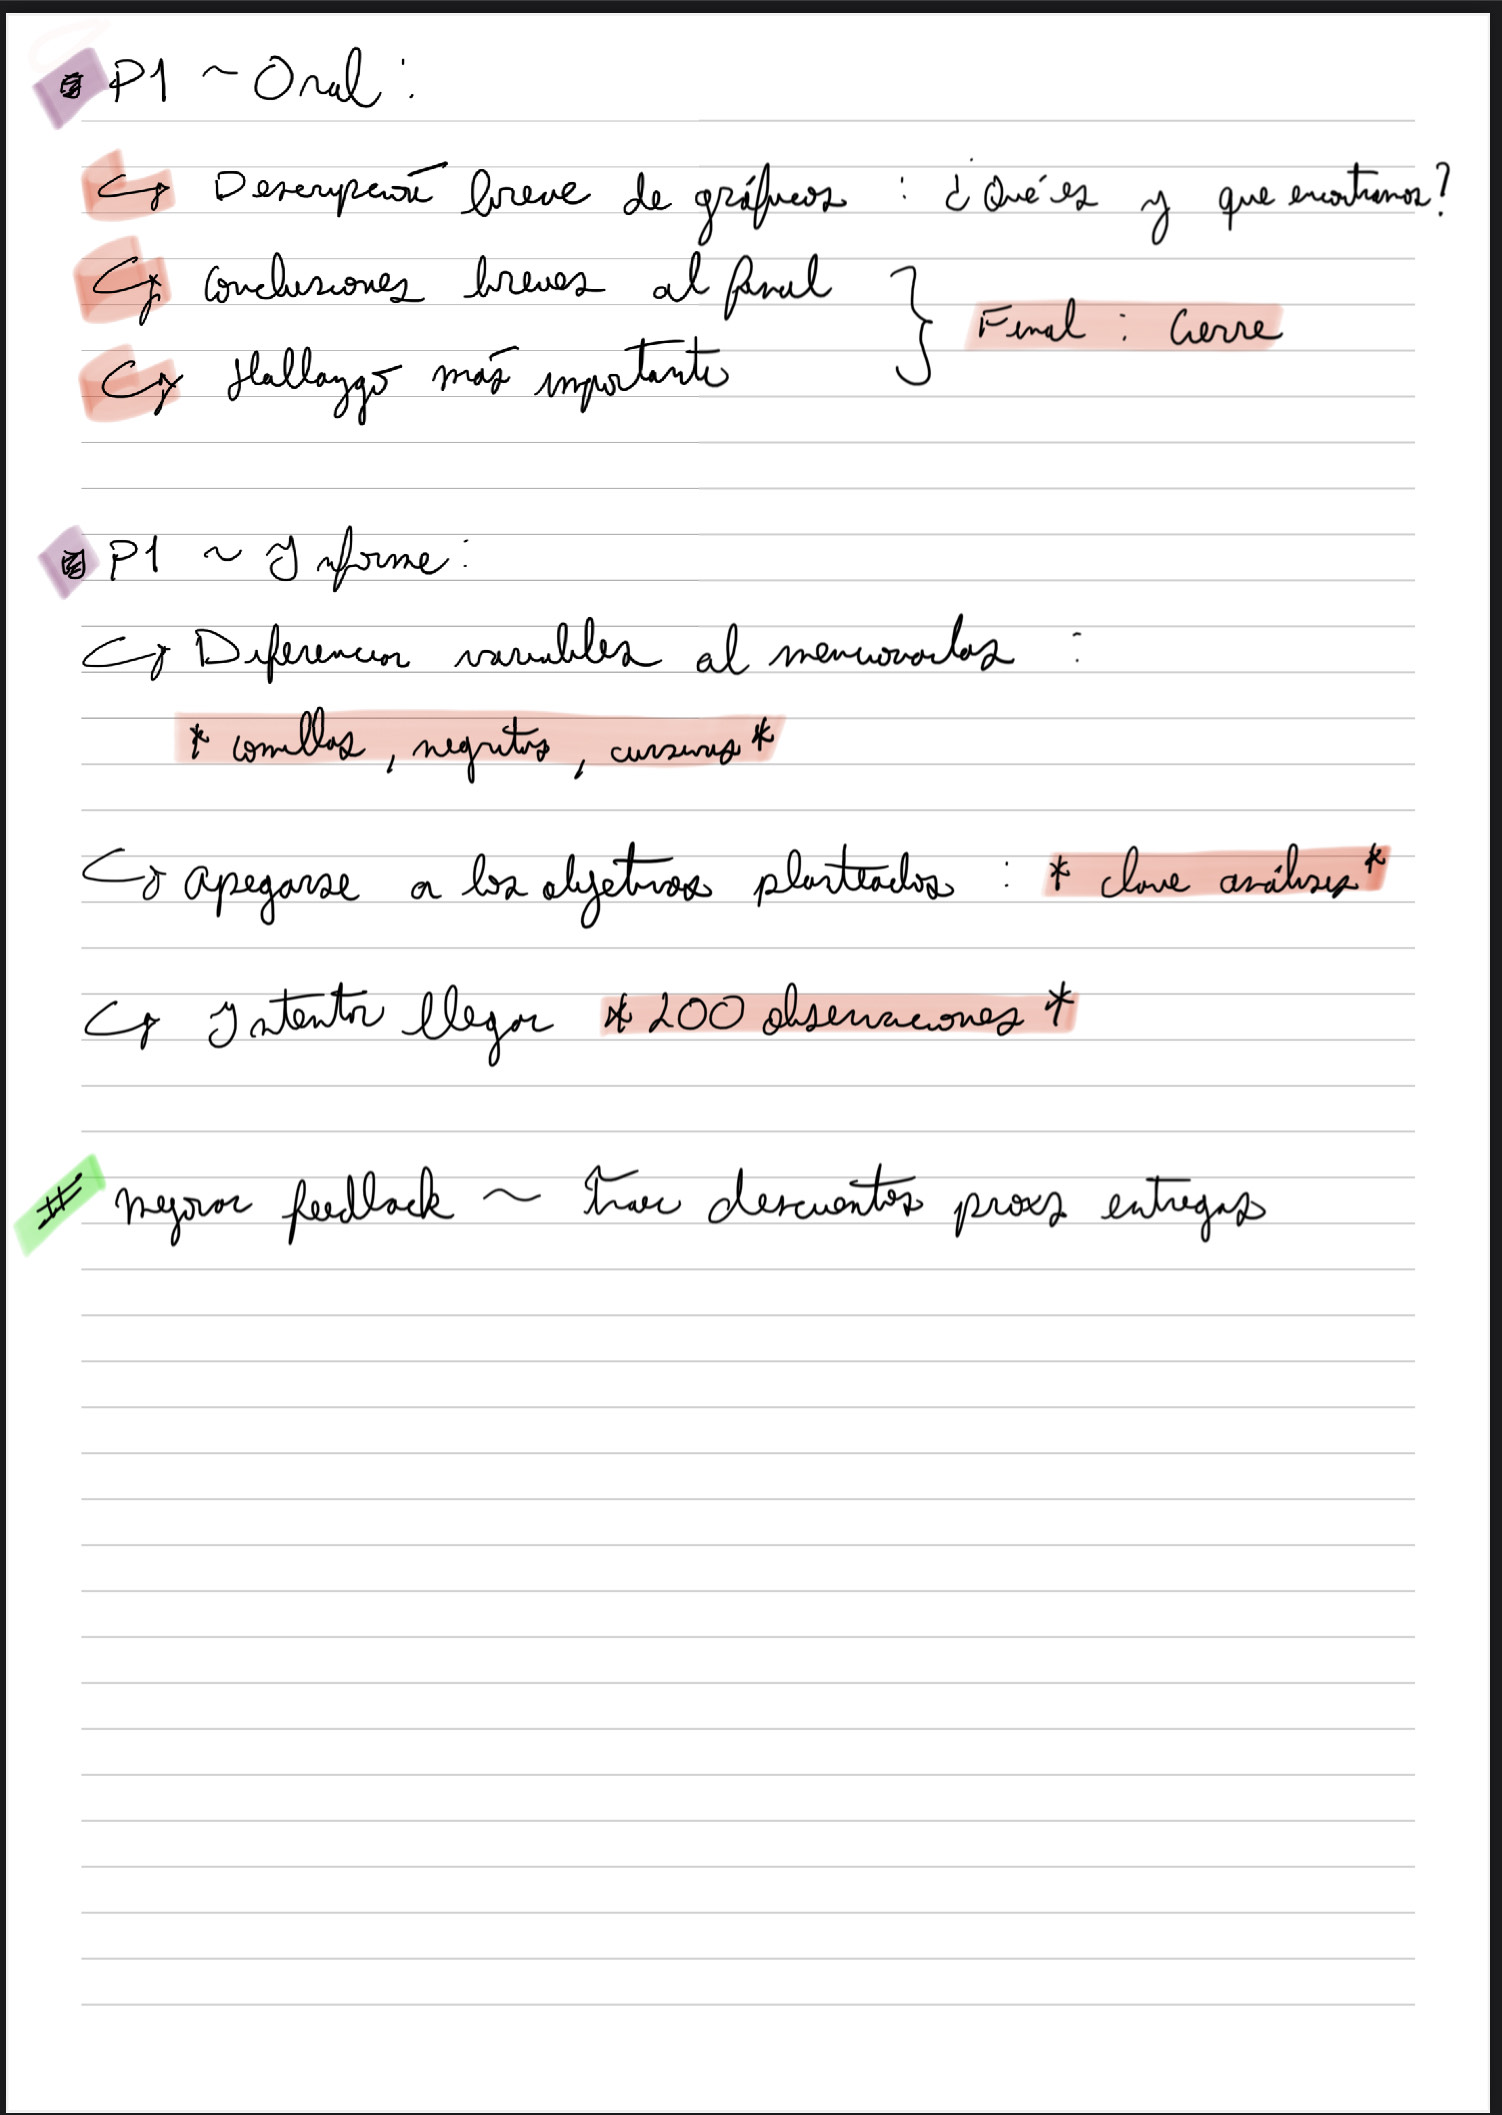 P1 ~ Oral :
↪ Descripción breve de gráficos : ¿Qué es y que encontramos?
↪ Conclusiones breves al final
} Final : Cierre
↪ Hallazgo más importante
P1 ~ Informe :
↪ Diferenciar variables al mencionarlas :
* comillas, negritas, cursivas *
↪ Apegarse a los objetivos planteados : * clave análisis *
↪ Intentar llegar * 200 observaciones *
# Mejorar feedback ~ Trae descuentos proxs entregas